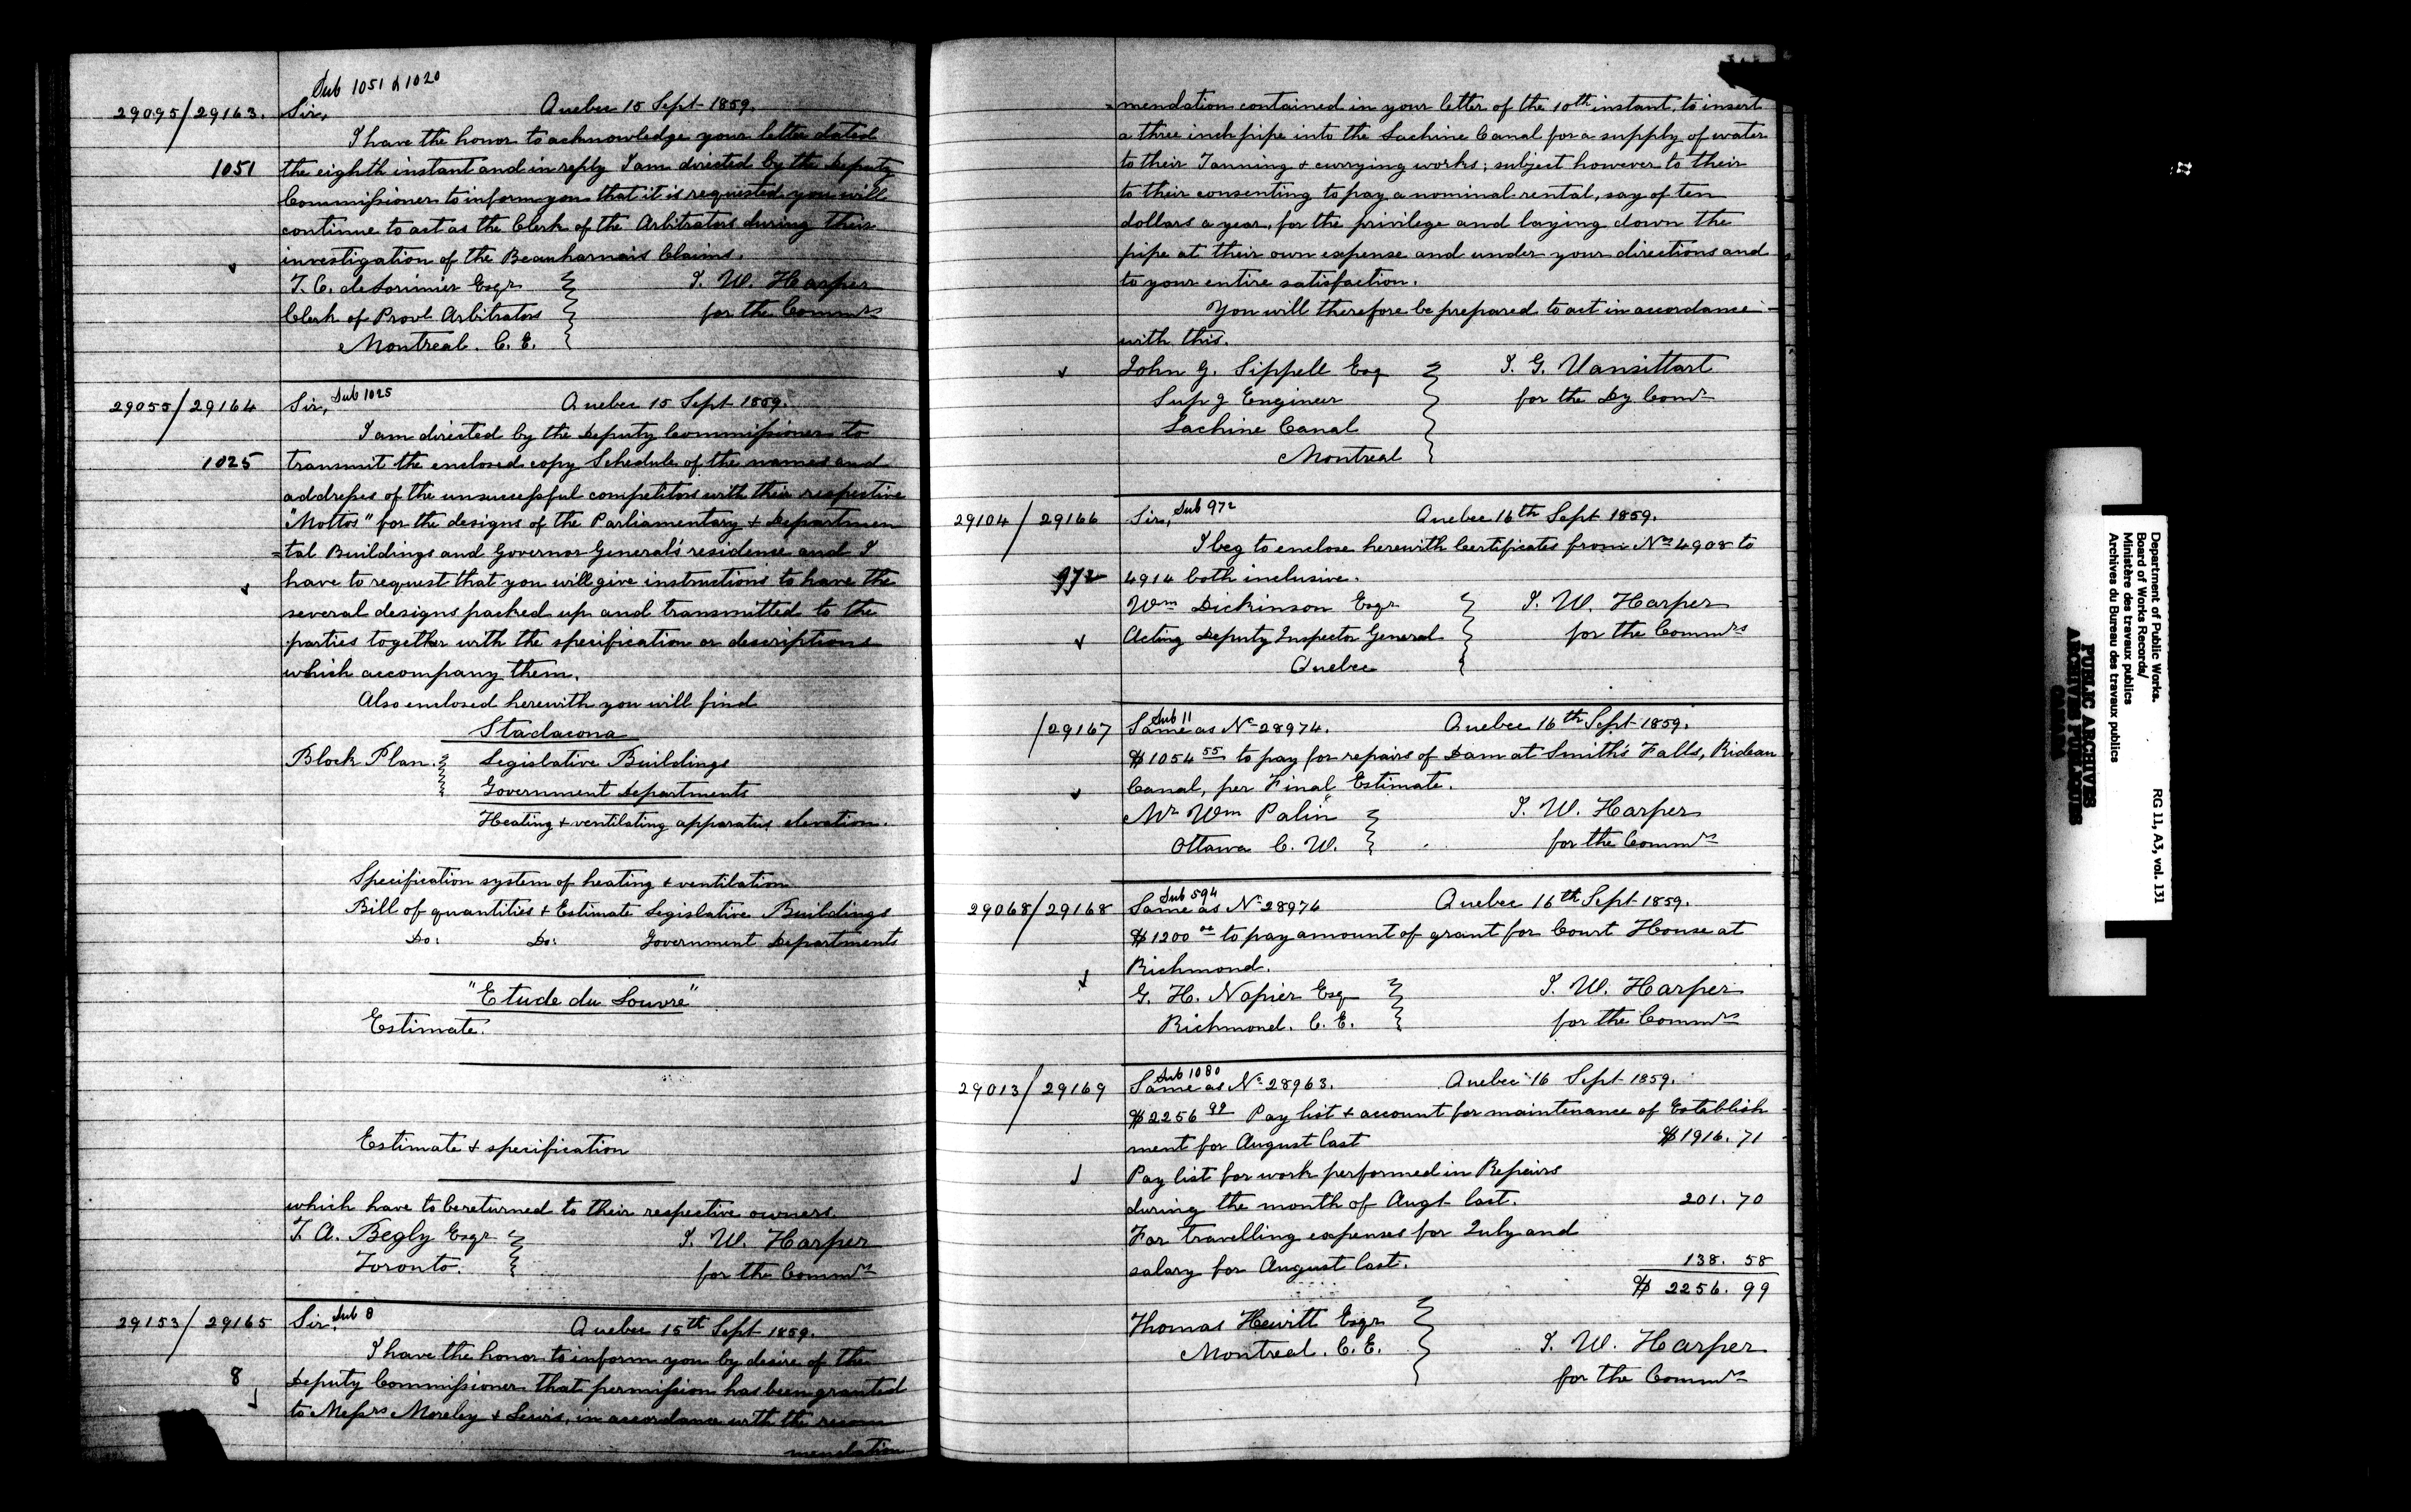 Sub 1051 & 1020
29095/29163. Sir, Quebec 15 Sept 1859.
I have the honor to acknowledge your letter dated
1051 the eighth instant and in reply I am directed by the Deputy
Commissioner to inform you that it is requested you will
continue to act as the Clerk of the Arbitrators during their
investigation of the Beauharnais Claims.
T. C. de Lorimier Esqr J. W. Harper
Clerk of Provl Arbitrators for the Commrs
Montreal. C. E.
29055/29164 Sir, Sub 1025 Quebec 15 Sept 1859.
I am directed by the Deputy Commissioner to
1025 transmit the enclosed copy Schedule of the names and
addresses of the unsuccessful competitors with their respective
"Mottos" for the designs of the Parliamentary & Departmen
=tal Buildings and Governor General's residence and I
have to request that you will give instructions to have the
several designs packed up and transmitted to the
parties together with the specification or descriptions
which accompany them.
Also enclosed herewith you will find
Stadacona
Block Plan. Legislative Buildings
Government Departments
Heating & ventilating apparatus elevation.
Specification system of heating & ventilation
Bill of quantities & Estimate Legislative Buildings
Do: Do: Government Departments
"Etude du Louvre"
Estimate.
Estimate & specification
which have to be returned to their respective owners.
T. A. Begly Esqr J. W. Harper
Toronto. for the Commrs
29153/29165 Sir, Sub 8 Quebec 15th Sept 1859.
I have the honor to inform you by desire of the
8 Deputy Commissioner that permission has been granted
to Messrs Moreley & Lewis, in accordance with the recom
mendation
=mendation contained in your letter of the 10th instant, to insert
a three inch pipe into the Lachine Canal for a supply of water
to their Tanning & currying works; subject however to their
to their consenting to pay a nominal rental, say of ten
dollars a year, for the privilege and laying down the
pipe at their own expense and under your directions and
to your entire satisfaction.
You will therefore be prepared to act in accordance
with this.
John G. Sippell Esq J. G. Vansittart
Supg Engineer for the Dy Comr
Lachine Canal
Montreal
29104/29166 Sir, Sub 972 Quebec 16th Sept 1859.
I beg to enclose herewith Certificates from Nos 4908 to
972 4914 both inclusive.
Wm Dickinson Esqr J. W. Harper
Acting Deputy Inspector General for the Commrs
Quebec
Sub 11
/29167 Same as No 28974. Quebec 16th Sept 1859.
$1054 55 to pay for repairs of Dam at Smith's Falls, Rideau
Canal, per Final Estimate.
Mr Wm Palin J. W. Harper
Ottawa C. W. for the Commrs
Sub 594
29068/29168 Same as No 28976 Quebec 16th Sept 1859.
$1200 00 to pay amount of grant for Court House at
Richmond.
G. H. Napier Esq J. W. Harper
Richmond. C. E. for the Commrs
Sub 1080
29013/29169 Same as No 28963. Quebec 16 Sept 1859.
$2256 99 Pay list & account for maintenance of Establish
ment for August last $1916. 71
Pay list for work performed in Repairs
during the month of Augt last. 201. 70
For travelling expenses for July and
salary for August last. 138. 58
$ 2256. 99
Thomas Hewitt Esqr
Montreal. C. E. J. W. Harper
for the Commrs
Department of Public Works. RG 11, A3, vol. 131
Board of Works Records/
Ministère des travaux publics
Archives du Bureau des travaux publics
PUBLIC ARCHIVES
ARCHIVES PUBLIQUES
CANADA